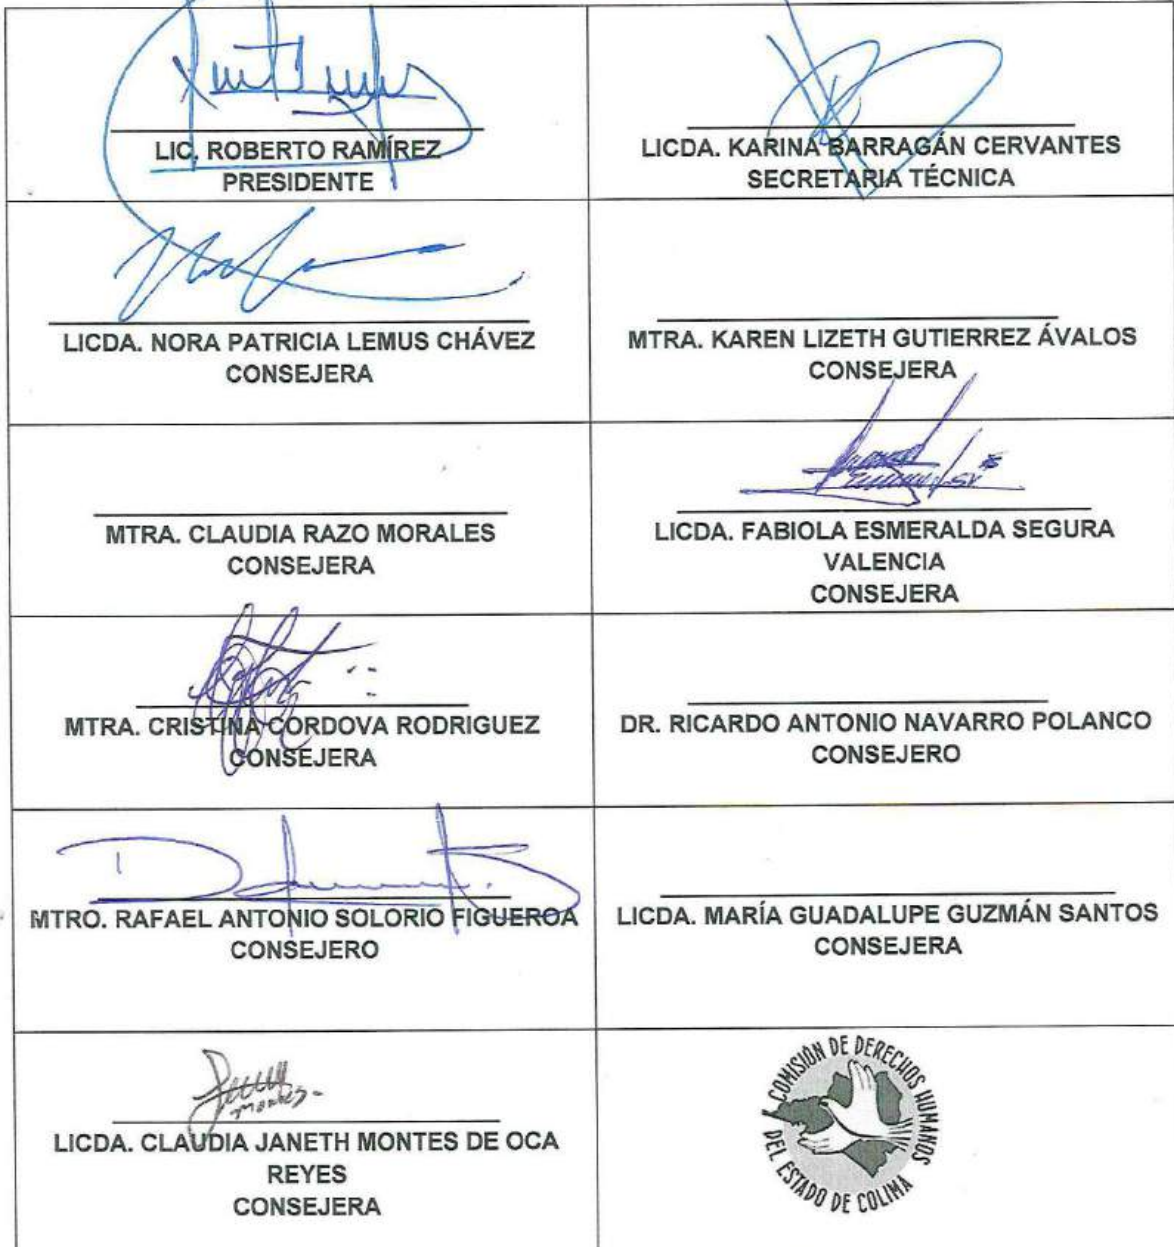 LIC. ROBERTO RAMÍREZ
PRESIDENTE
LICDA. KARINA BARRAGÁN CERVANTES
SECRETARIA TÉCNICA
LICDA. NORA PATRICIA LEMUS CHÁVEZ
CONSEJERA
MTRA. KAREN LIZETH GUTIERREZ ÁVALOS
CONSEJERA
MTRA. CLAUDIA RAZO MORALES
CONSEJERA
LICDA. FABIOLA ESMERALDA SEGURA
VALENCIA
CONSEJERA
MTRA. CRISTINA CORDOVA RODRIGUEZ
CONSEJERA
DR. RICARDO ANTONIO NAVARRO POLANCO
CONSEJERO
MTRO. RAFAEL ANTONIO SOLORIO FIGUEROA
CONSEJERO
LICDA. MARÍA GUADALUPE GUZMÁN SANTOS
CONSEJERA
Montes
LICDA. CLAUDIA JANETH MONTES DE OCA
REYES
CONSEJERA
COMISIÓN DE DERECHOS HUMANOS
DEL ESTADO DE COLIMA